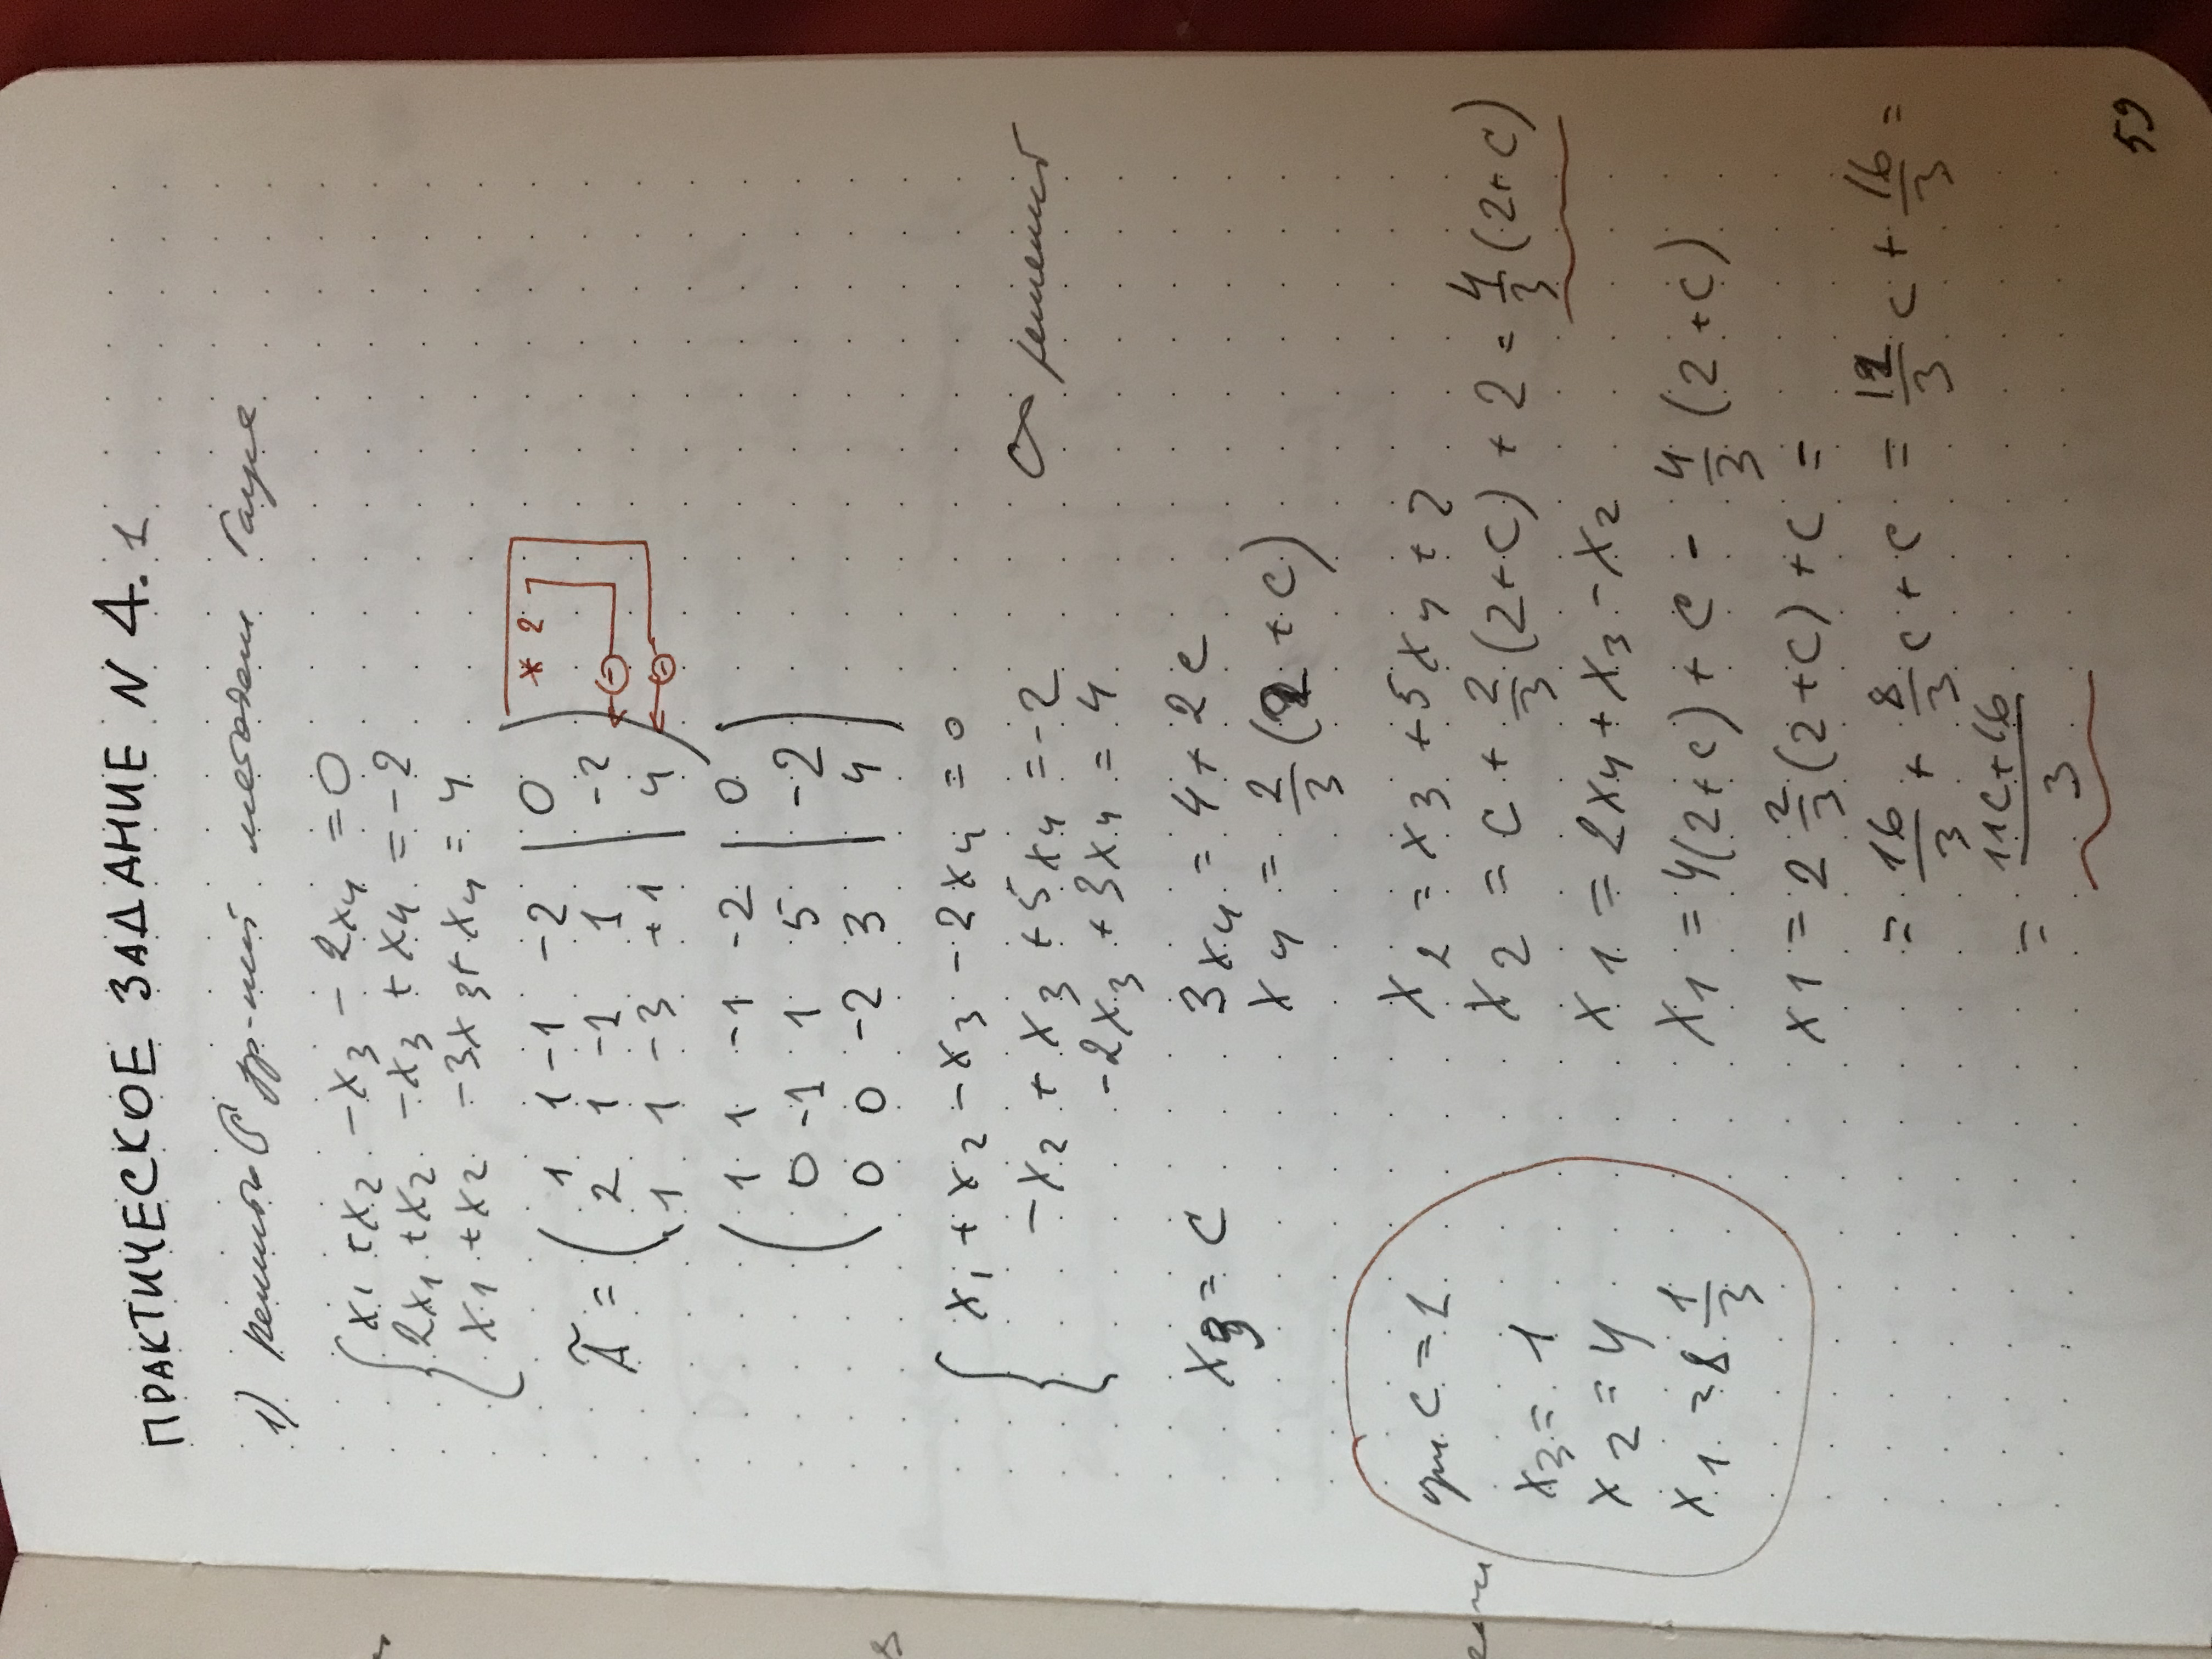 ПРАКТИЧЕСКОЕ ЗАДАНИЕ N 4.1
1) решить ур-ний методом Гаусса
x1 + x2 - x3 - 2x4 = 0
2x1 + x2 - x3 + x4 = -2
x1 + x2 - 3x3 + x4 = 4
Ã = ( 1 1 -1 -2 | 0 ) * 2
2 1 -1 1 | -2 -
1 1 -3 +1 | 4 -
( 1 1 -1 -2 | 0 )
0 -1 1 5 | -2
0 0 -2 3 | 4
x1 + x2 - x3 - 2x4 = 0
-x2 + x3 + 5x4 = -2 ∞ решений
-2x3 + 3x4 = 4
x3 = C 3x4 = 4 + 2C
x4 = 2/3 (2 + C)
x2 = x3 + 5x4 + 2
x2 = C + 2/3 (2+C) + 2 = 4/3 (2+C)
x1 = 2x4 + x3 - x2
x1 = 4(2+C) + C - 4/3 (2+C)
x1 = 2 2/3 (2+C) + C =
= 16/3 + 8/3 C + C = 11/3 C + 16/3 =
= 11C+16/3
при C = 1
x3 = 1
x2 = 4
x1 = 8 1/3
59